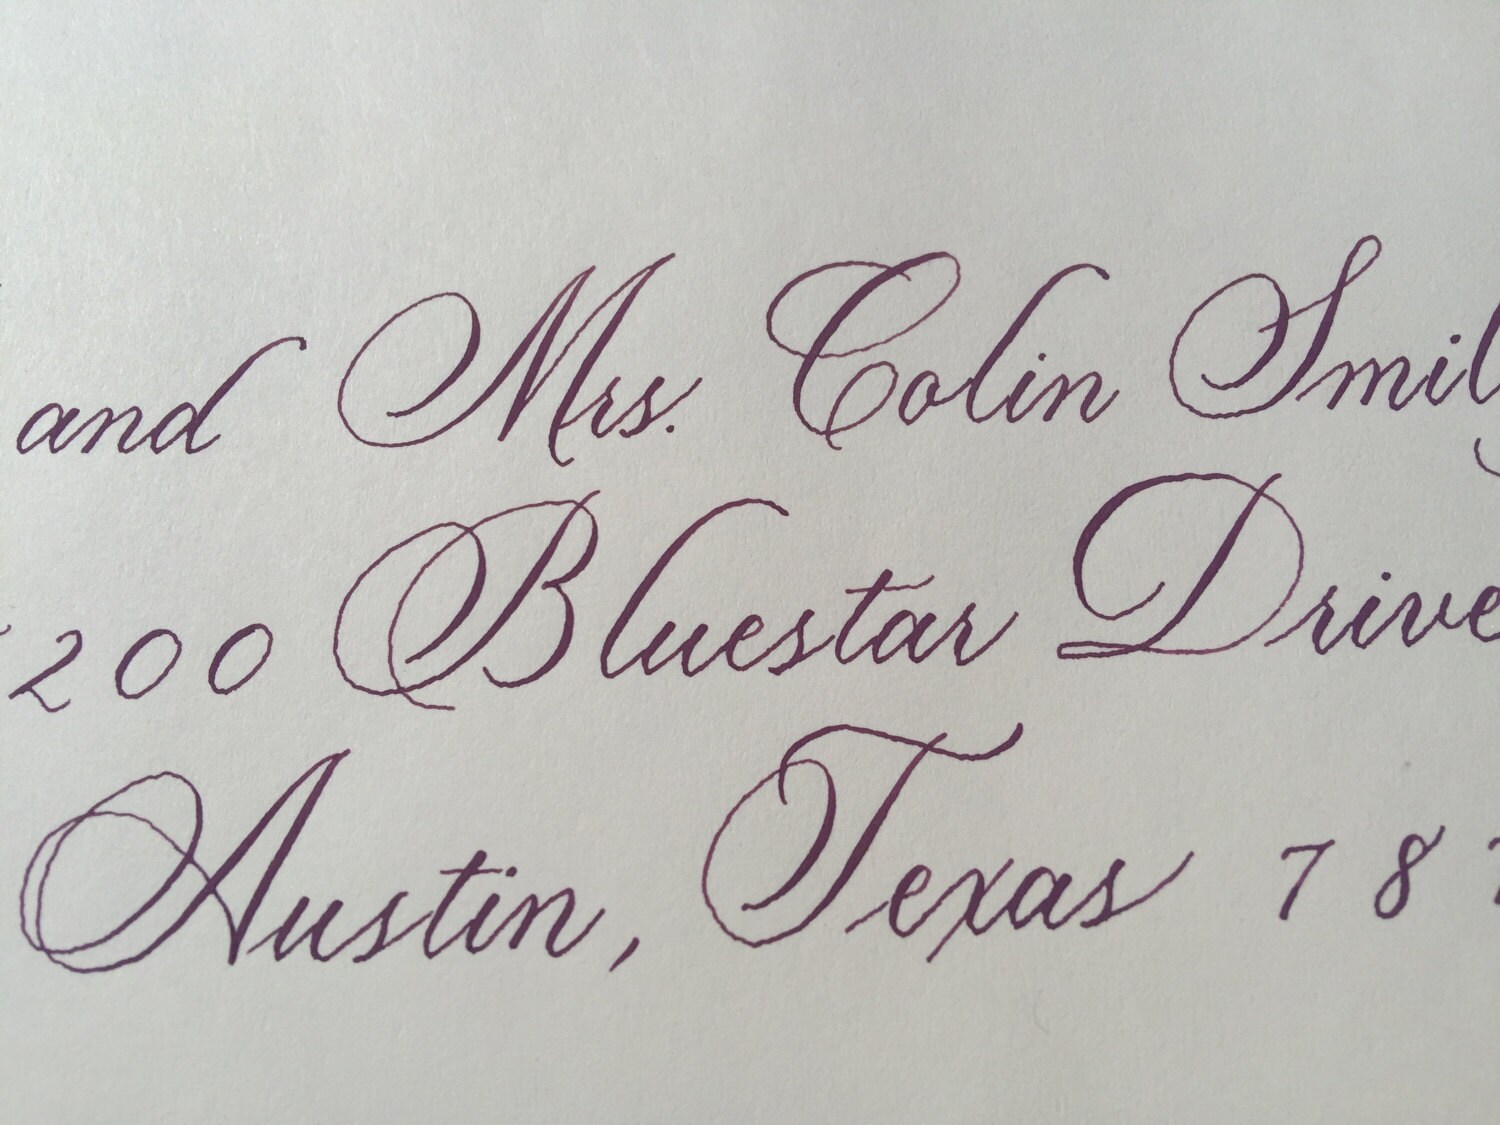 and Mrs. Colin Smil
200 Bluestar Drive
Austin, Texas 78